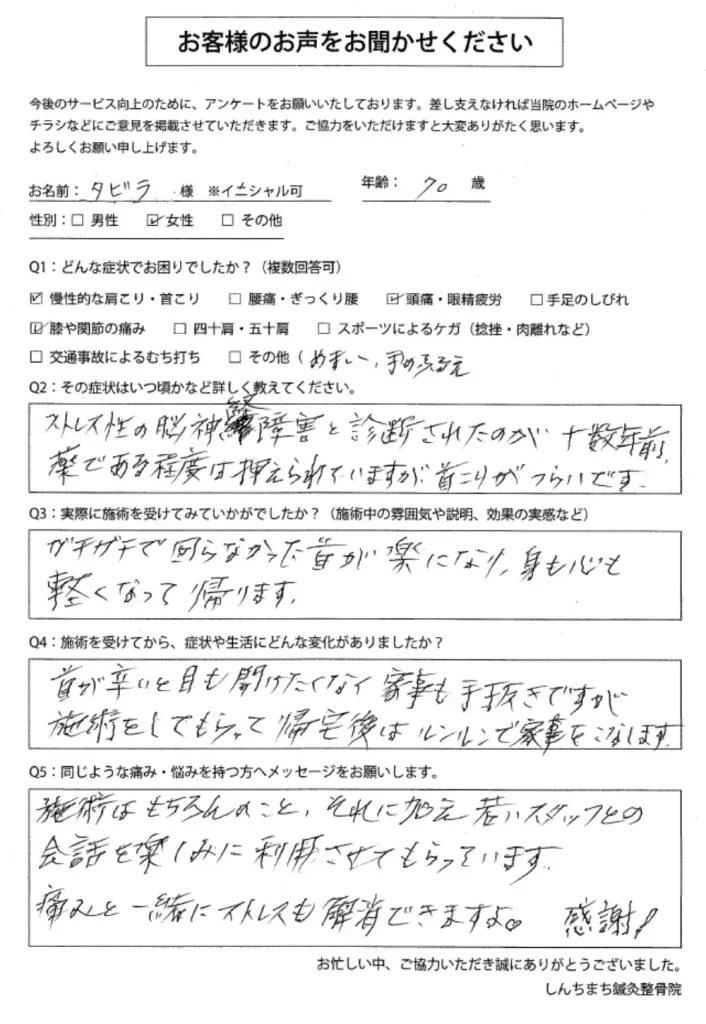 お客様のお声をお聞かせください
今後のサービス向上のために、アンケートをお願いいたしております。差し支えなければ当院のホームページや
チラシなどにご意見を掲載させていただきます。ご協力をいただけますと大変ありがたく思います。
よろしくお願い申し上げます。
お名前：タビラ 様 ※イニシャル可 年齢：70 歳
性別：□ 男性 ☑ 女性 □ その他
Q1：どんな症状でお困りでしたか？（複数回答可）
☑ 慢性的な肩こり・首こり □ 腰痛・ぎっくり腰 ☑ 頭痛・眼精疲労 □ 手足のしびれ
☑ 膝や関節の痛み □ 四十肩・五十肩 □ スポーツによるケガ（捻挫・肉離れなど）
□ 交通事故によるむち打ち □ その他（めまい、手のふるえ
Q2：その症状はいつ頃かなど詳しく教えてください。
ストレス性の脳神経障害と診断されたのが十数年前、
薬である程度は押えられていますが首こりがつらいです。
Q3：実際に施術を受けてみていかがでしたか？（施術中の雰囲気や説明、効果の実感など）
ガチガチで回らなかった首が楽になり、身も心も
軽くなって帰ります。
Q4：施術を受けてから、症状や生活にどんな変化がありましたか？
首が辛いと目も開けたくなく家事も手抜きですが
施術をしてもらって帰宅後はルンルンで家事をこなします
Q5：同じような痛み・悩みを持つ方へメッセージをお願いします。
施術はもちろんのこと、それに加え若いスタッフとの
会話を楽しみに利用させてもらっています。
痛みと一緒にストレスも解消できますよ♡ 感謝！
お忙しい中、ご協力いただき誠にありがとうございました。
しんちまち鍼灸整骨院